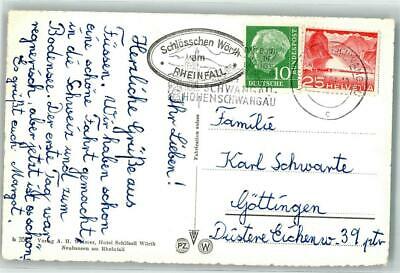 Ihr Lieben!
Herzliche Grüße aus
Füssen. Wir haben schon
eine schöne Fahrt gemacht
in die Schweiz und zum
Bodensee. Der erste Tag war
regnerisch, aber jetzt ist es schön.
Es grüßt euch Margot.
Schlösschen Wörth
am
RHEINFALL
DEUTSCHE
BUNDESPOST
10
25 HELVETIA
SCHWANGAU
HOHENSCHWANGAU
c
Familie
Karl Schwarte
Göttingen
Düstere Eichenw. 39 ptr
Verlag A. H. Hotel Schlößli Wörth
Neuhausen am Rheinfall
PZ W